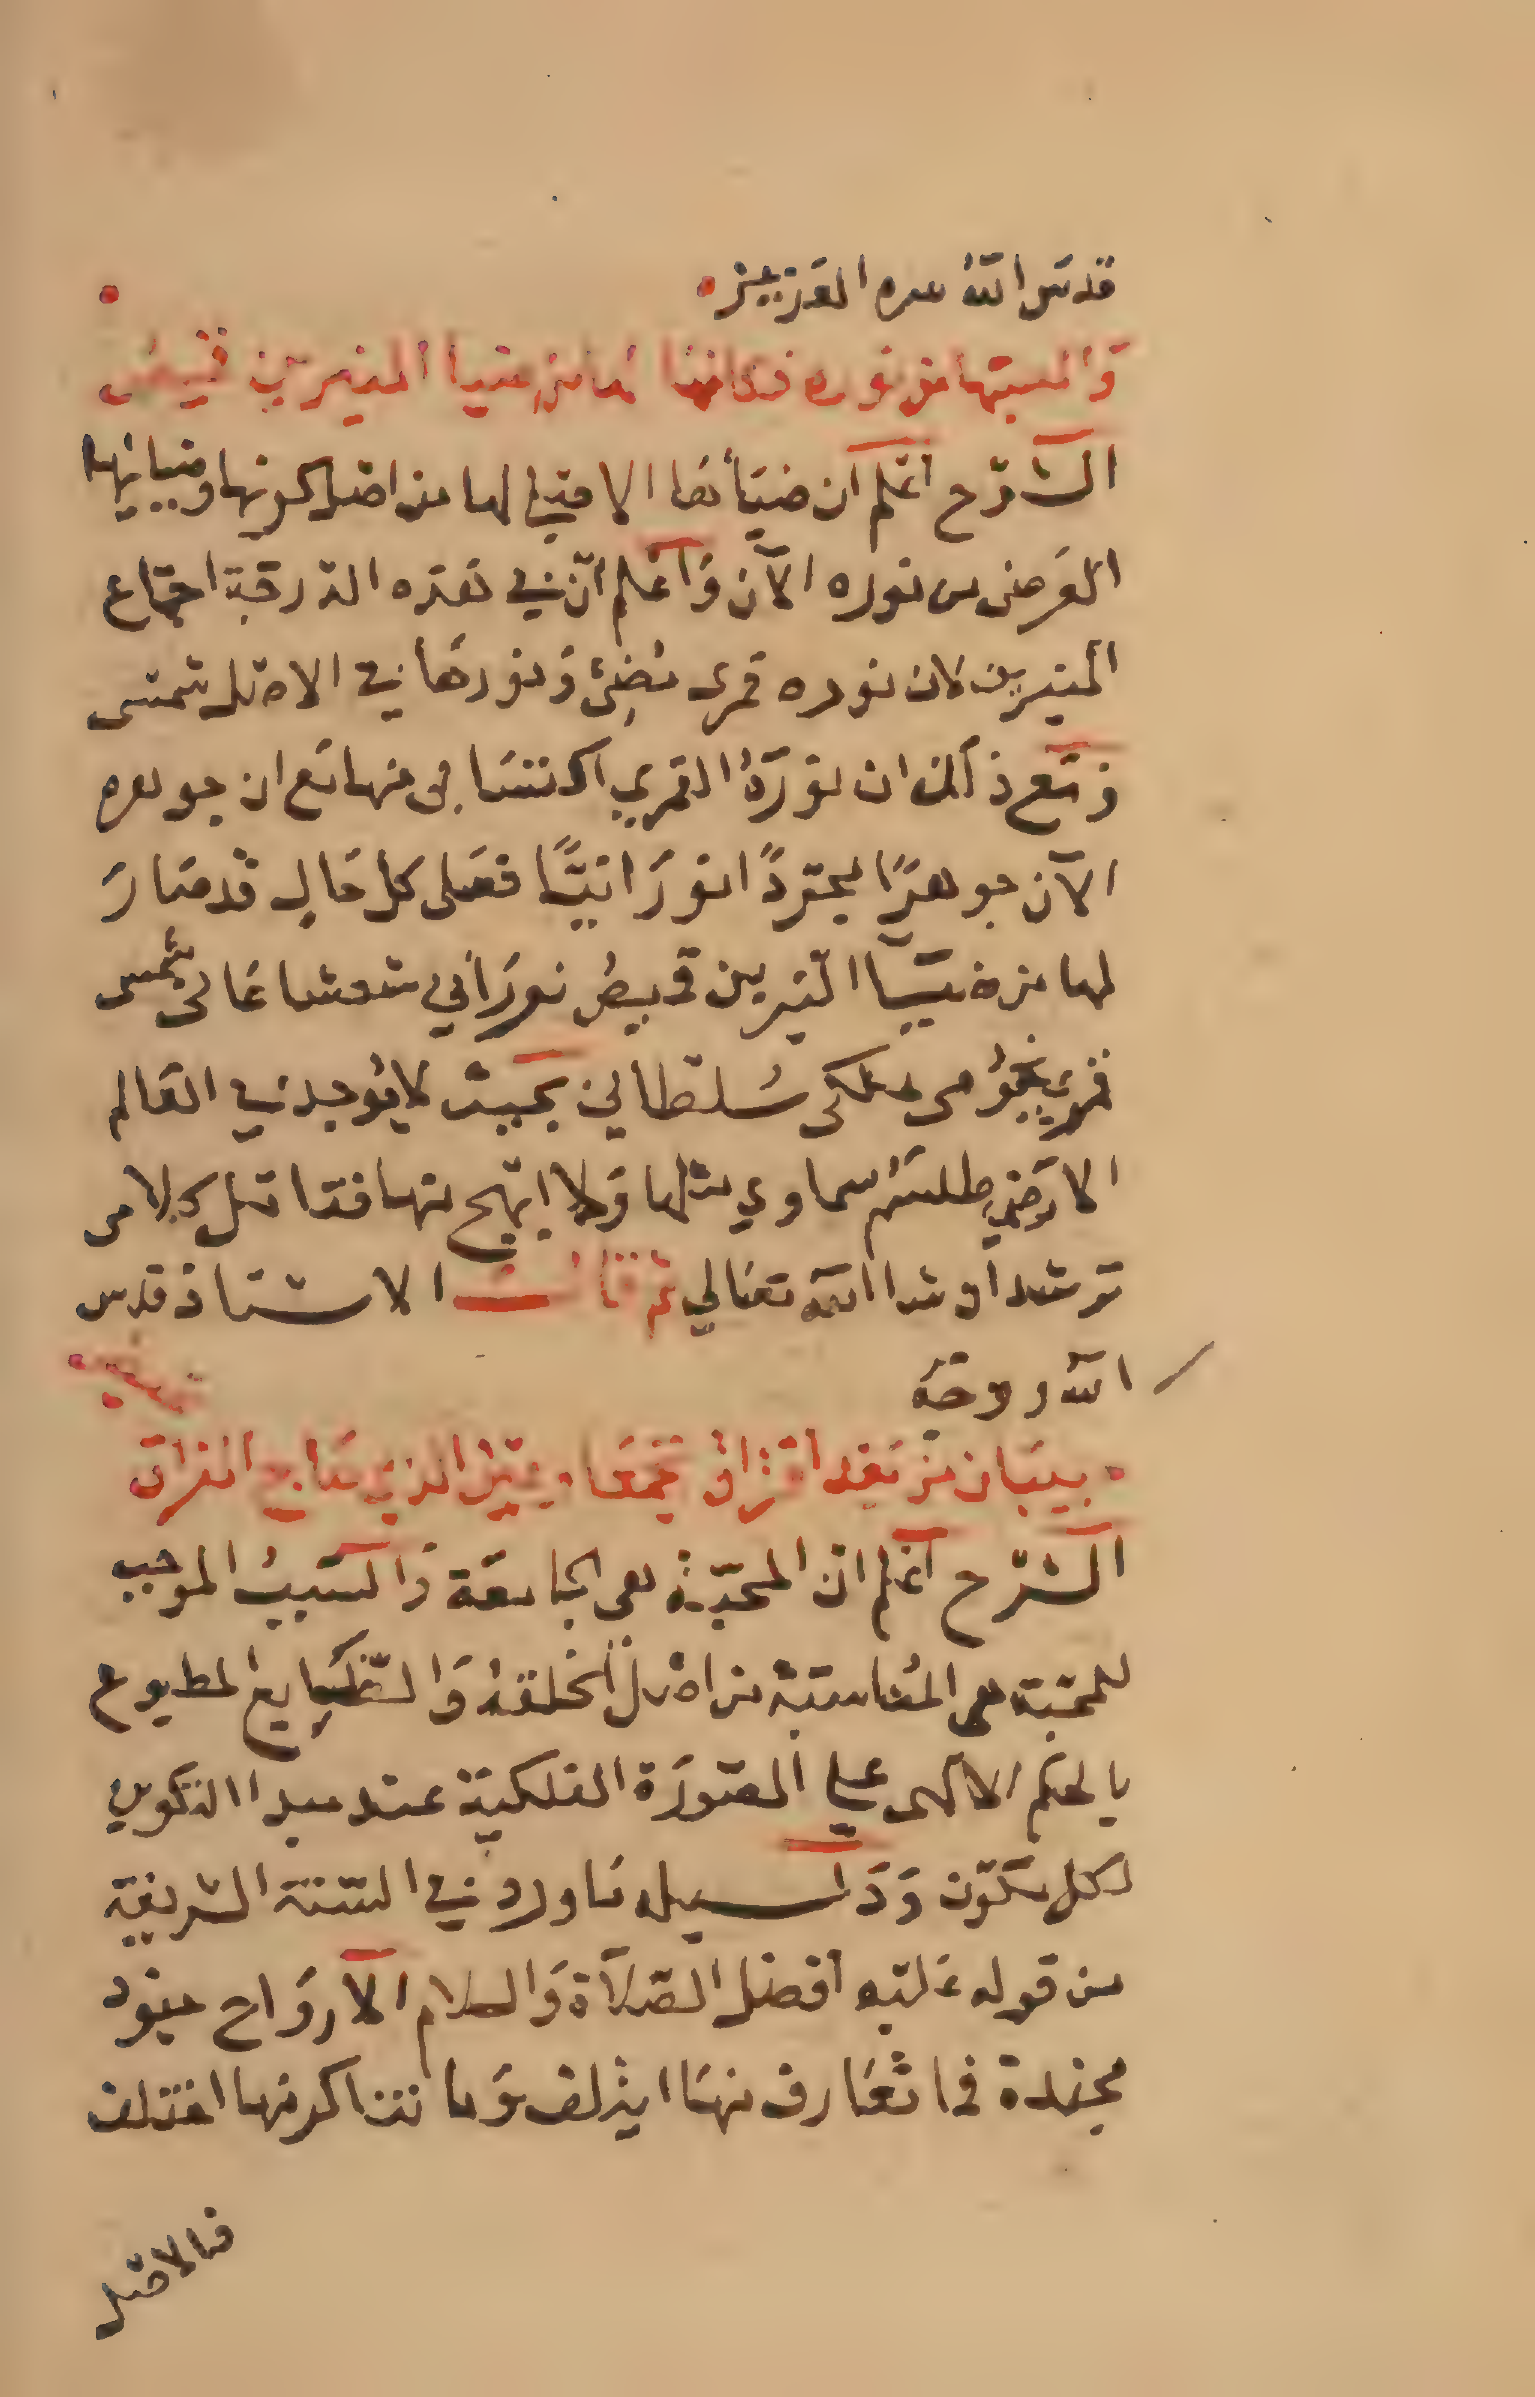 قدس الله سره العزيز
والبسها من نوره فكانما لها من ضيا النيرين قميص
الشرح اعلم ان ضيائها الاصلي لها من اصل كونها وضيائها
العرضي من نوره الآن واعلم ان في هذه الدرجة اجتماع
النيرين لان نوره قمري مضئ ونورها في الاصل شمسى
ومع ذلك ان نوره القمري اكتسابى منها مع ان جوهره
الآن جوهرًا مجردًا نورانيًّا فعلى كل حال قد صار
لها من ضيا النيرين قميص نوراني شعشاعانى شمسى
قمري نجومى ملكى سلطاني بحيث لا يوجد في العالم
الارضي طلسم سماوي مثلها ولا ابهج منها فتامل كلامى
ترشد ان شا الله تعالي ثم قال الاستاذ قدس
الله روحه
ببيان من بعد افتراق تجمعا
الشرح اعلم ان المحبة هى الجامعة والسبب الموجب
للمحبة هى المناسبة من اصل الخلقة والطبايع المطبوع
بالحكم الالهى علي الصورة الفلكية عند مبدا التكوين
لكل متكون ودليله ما ورد في السنة الشريفة
من قوله عليه افضل الصلاة والسلام الارواح جنود
مجندة فما تعارف منها ايتلف وما تناكر منها اختلف
فالاصل